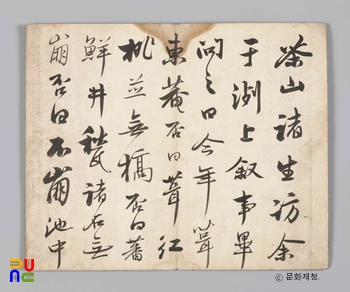 茶山諸生訪余
于洌上叙事畢
問之曰今年葺
東菴否曰葺紅
桃並無槁否曰蕃
鮮井甃諸石無
崩否曰不崩池中
ⓒ 문화재청.